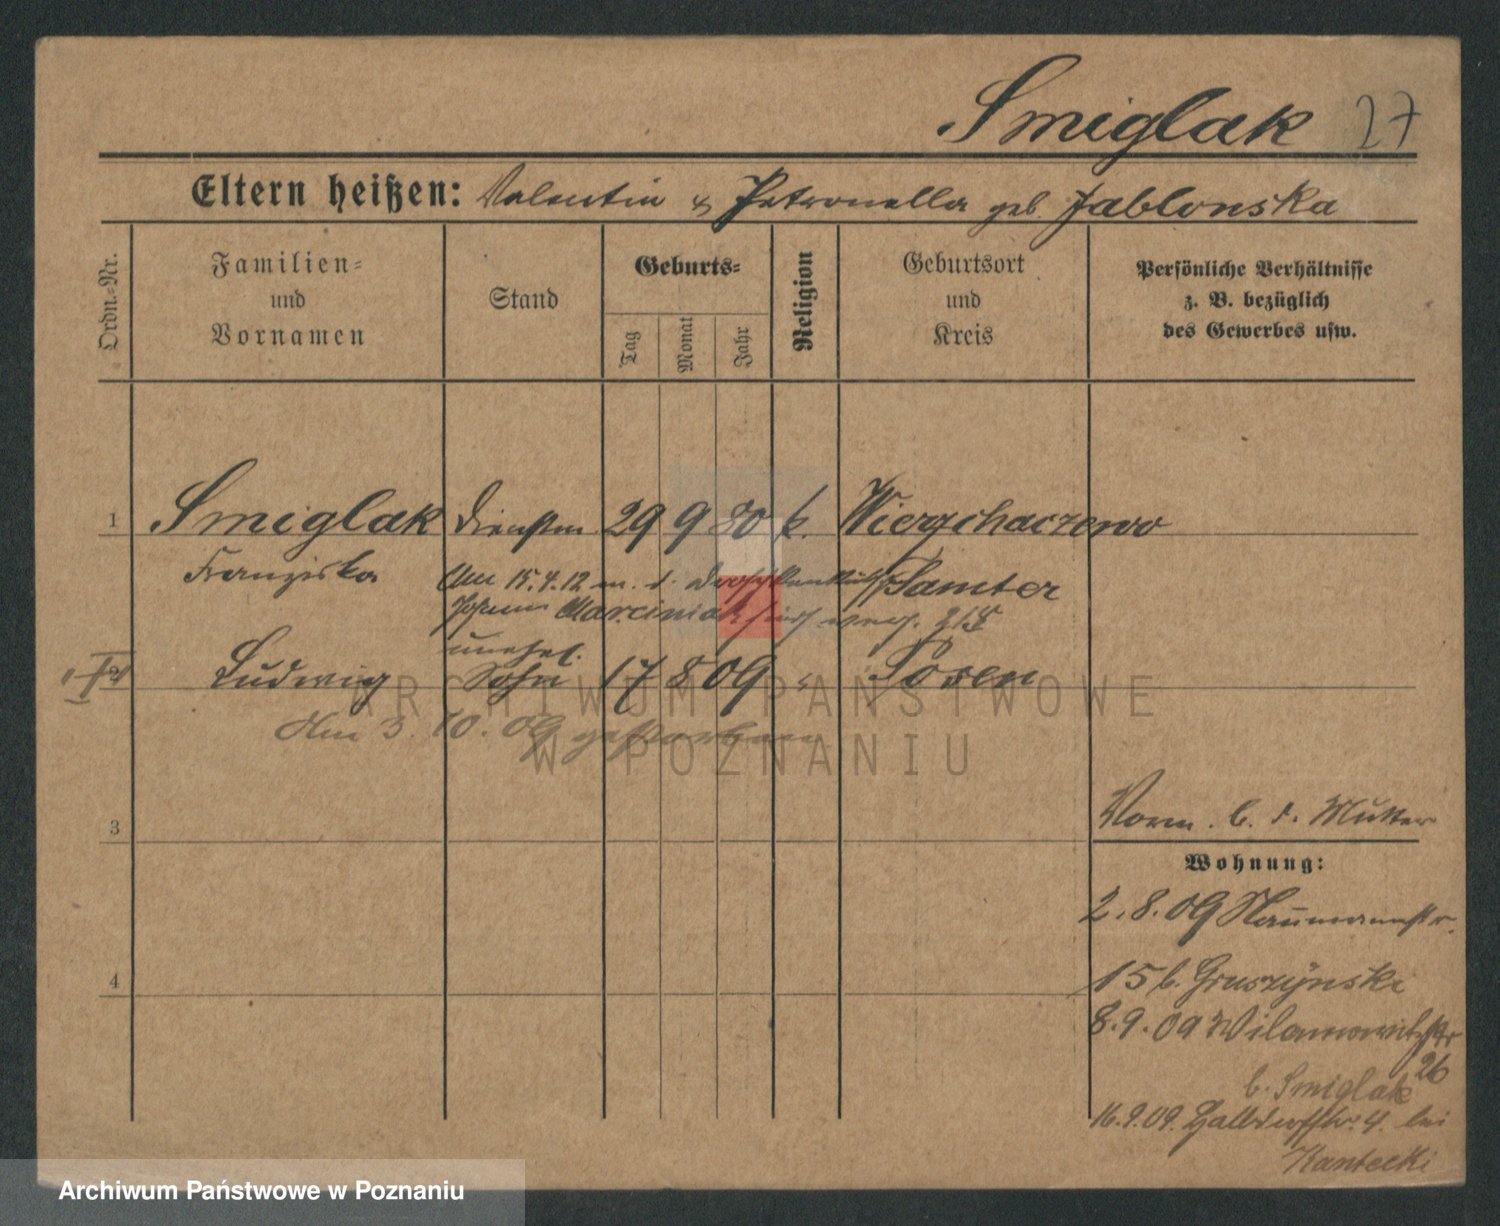 Smiglak 27
Eltern heißen: Valentin & Petronella geb. Jablonska
Ordn.-Nr.
Familien-
und
Vornamen
Stand
Geburts-
Tag
Monat
Jahr
Religion
Geburtsort
und
Kreis
Persönliche Verhältnisse
z. B. bezüglich
des Gewerbes usw.
1 Smiglak Dienstm. 29 9 80 k. Wierzchaczewo
Franziska Samter
Am 15.4.12 m. d. Droschkenkutscher
Johann Marciniak sich verh.
unehel.
2 Ludwig Sohn 17 8 09 " Posen
Am 3. 10. 09 gestorben
3
4
Vorm. b. d. Mutter
Wohnung:
2.8.09 Naumannstr.
15 b. Gruszynski
8.9.09 Wilamowitzstr
26
b. Smiglak
16.9.09. Halldorfstr. 4. bei
Kantecki
ARCHIWUM PAŃSTWOWE
W POZNANIU
Archiwum Państwowe w Poznaniu